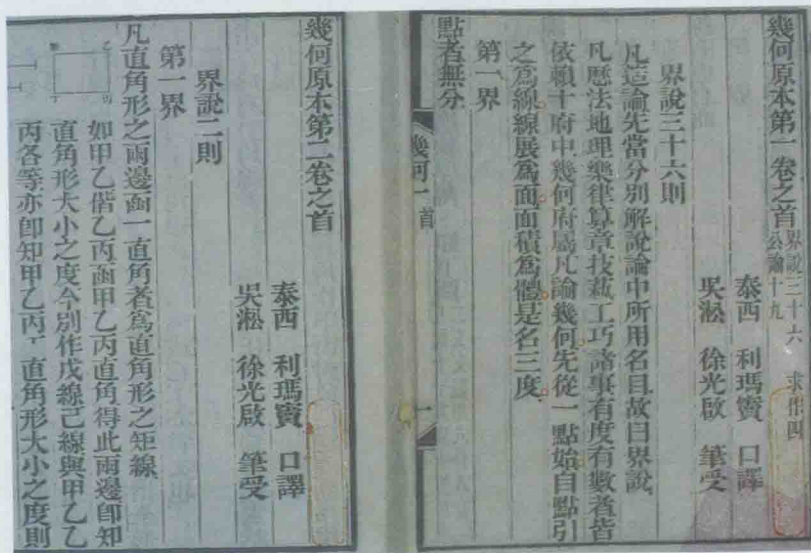 幾何原本第一卷之首 界說三十六 求作四
公論十九
泰西 利瑪竇 口譯
吳淞 徐光啟 筆受
界說三十六則
凡造論先當分別解說論中所用名目故曰界說
凡歷法地理樂律算章技藝工巧諸事有度有數者皆
依賴十府中幾何府屬凡論幾何先從一點始自點引
之為線線展為面面積為體是名三度
第一界
點者無分
幾何一 首
一
幾何原本第二卷之首
泰西 利瑪竇 口譯
吳淞 徐光啟 筆受
界說二則
第一界
凡直角形之兩邊函一直角者為直角形之矩線
如甲乙偕乙丙函甲乙丙直角得此兩邊即知
直角形大小之度今別作戊線己線與甲乙乙
丙各等亦即知甲乙丙丁直角形大小之度則
乙
丙
丁